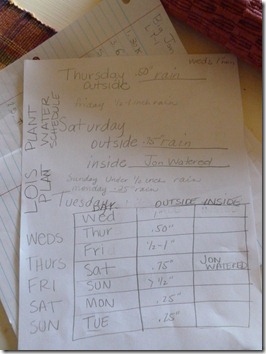 Thursday .50" rain
outside
Friday 1/2 inch rain
Saturday
outside .75" rain
inside Jon Watered
Sunday Under 1/2 inch rain
monday .25" rain
Tuesday
LOIS PLANT
PLAN WATER
SCHEDULE
WEDS
THURS
FRI
SAT
SUN
DAY OUTSIDE INSIDE
Wed
Thur .50"
Fri 1/2-1"
Sat .75" JON WATERED
SUN > 1/2"
MON .25"
TUE .25"